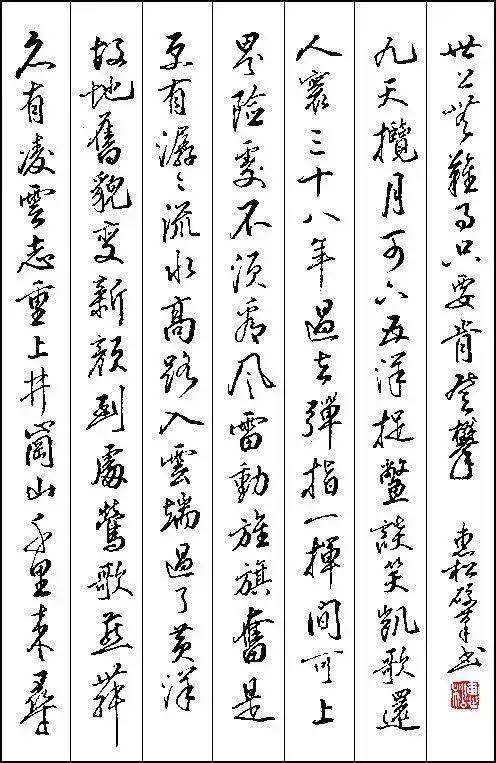 久有凌雲志重上井崗山千里来尋
故地舊貌変新顔到處鶯歌燕舞
更有潺々流水高路入雲端過了黄洋
界險處不須看風雷動旌旗奮是
人寰三十八年過去彈指一揮間可上
九天攬月可下五洋捉鱉談笑凱歌還
世上無難事只要肯登攀
惠松硬筆書